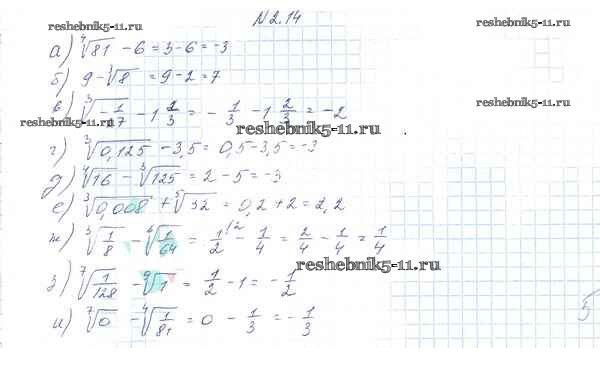 reshebnik5-11.ru
N2.14
reshebnik5-11.ru
а) ∜81 - 6 = 3 - 6 = -3
б) 9 - ∛8 = 9 - 2 = 7
reshebnik5-11.ru
в) ∛(-1/27) - 1 2/3 = -1/3 - 1 2/3 = -2
reshebnik5-11.ru
reshebnik5-11.ru
г) ∛0,125 - 3,5 = 0,5 - 3,5 = -3
д) ∜16 - ∛125 = 2 - 5 = -3
е) ∛0,008 + ⁵√32 = 0,2 + 2 = 2,2
ж) ∛(1/8) - (1/64) = 1/2 - 1/4 = 2/4 - 1/4 = 1/4
reshebnik5-11.ru
з) ⁷√(1/128) - ⁹√1 = 1/2 - 1 = -1/2
и) ⁷√0 - ∜(1/81) = 0 - 1/3 = -1/3
5